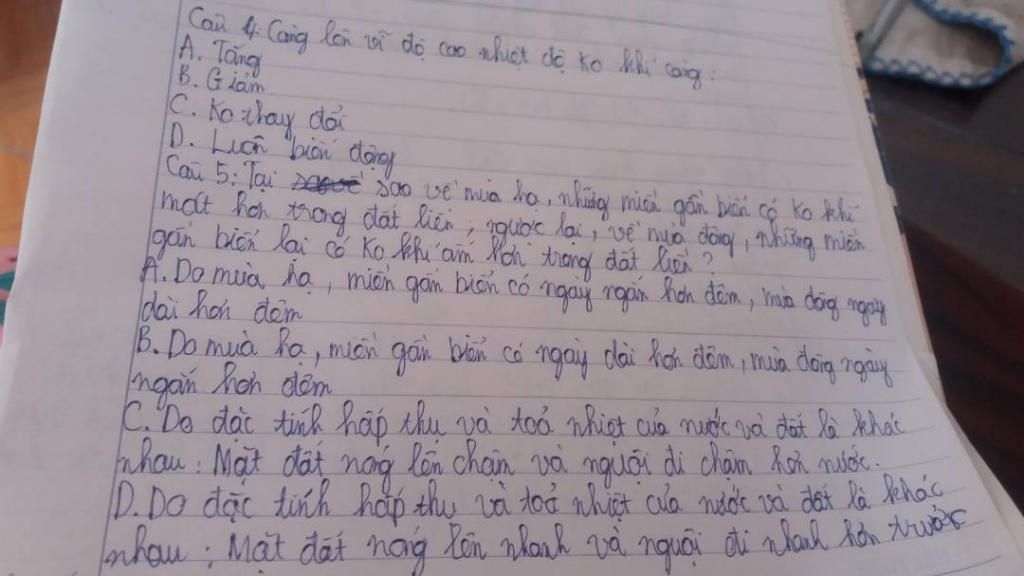 Câu 4. Càng lên vĩ độ cao nhiệt độ ko khí càng:
A. Tăng
B. Giảm
C. Ko thay đổi
D. Luôn biến động
Câu 5: Tại sao về mùa hạ, những miền gần biển có ko khí
mát hơn trong đất liền; ngược lại, về mùa đông, những miền
gần biển lại có ko khí ấm hơn trong đất liền?
A. Do mùa hạ, miền gần biển có ngày ngắn hơn đêm, mùa đông ngày
dài hơn đêm
B. Do mùa hạ, miền gần biển có ngày dài hơn đêm, mùa đông ngày
ngắn hơn đêm
C. Do đặc tính hấp thụ và toả nhiệt của nước và đất là khác
nhau: Mặt đất nóng lên chận và nguội đi chậm hơn nước.
D. Do đặc tính hấp thụ và toả nhiệt của nước và đất là khác
nhau: Mặt đất nóng lên nhanh và nguội đi nhanh hơn trước